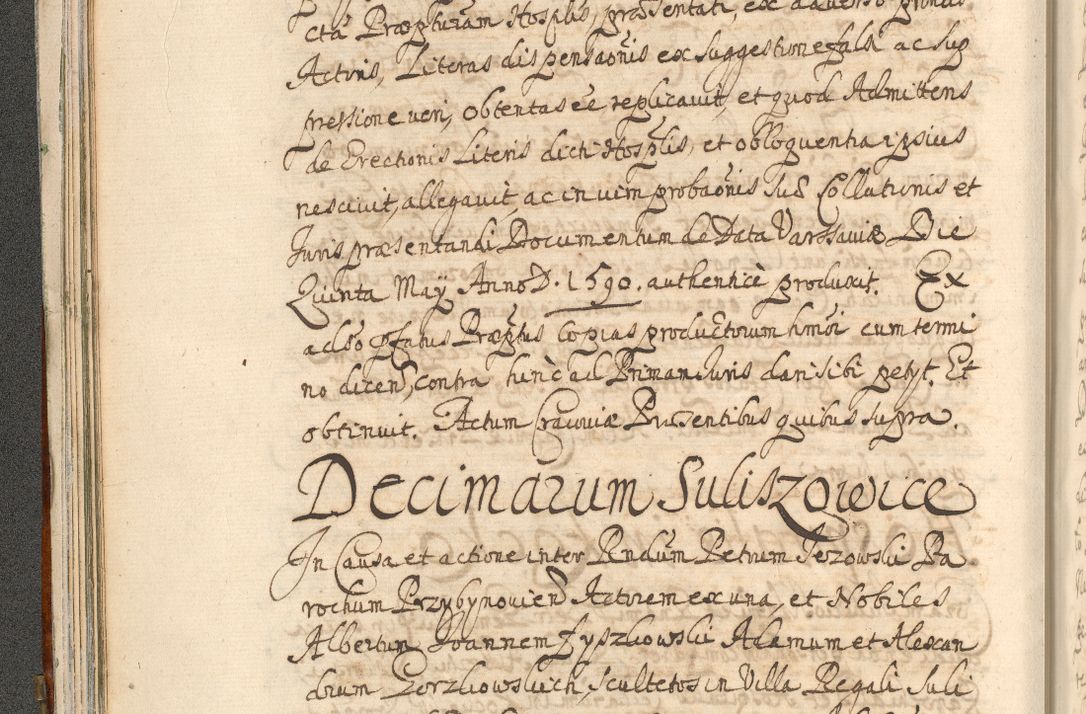 cta Præpturam Hosplis, præsentati, ex adverso
Actoris, Literas dispensaonis ex suggestione falsi ac sup
pressione veri, obtentas eê replicavit, et quod Admittens
de Erectionis Literis dicti Hosplis, et obloquentia ipsius
nescivit, allegavit, ac in vim probaonis sué Collationis et
Juris præsentandi Documentum de Data Varssaviæ Die
Quinta Maÿ Anno D. 1590. authenticè produxit. Ex
adúo pfatus Præptus Copias productorum hmoi cum termi
no dicen, contra hinc ad Priman Juris dari sibi petÿt. Et
obtinuit. Actum Cracoviæ Præsentibus quibus supra.
Decimarum Suliszowice
In Causa et actione inter Rndum Petrum Jezowski Pa
rochum Przybynovien Actorem ex una, et Nobiles
Albertum Joannem Zyszkowski Adamum et Alexan
drum Gorzkowskich, Scultetos in Villa Regali Suli